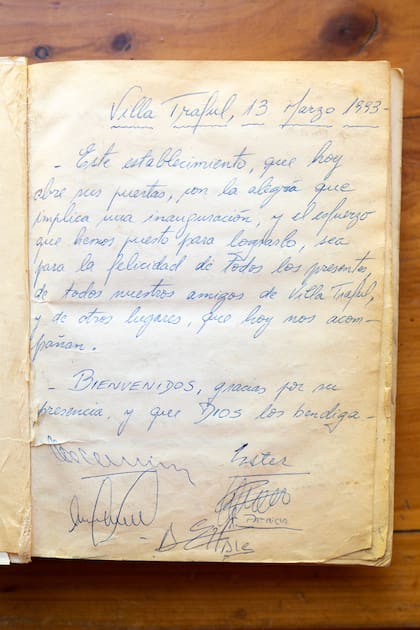 Villa Traful, 13 Marzo 1993-
- Este establecimiento, que hoy
abre sus puertas, con la alegría que
implica una inauguración, y el esfuerzo
que hemos puesto para lograrlo, sea
para la felicidad de todos los presentes,
de todos nuestros amigos de Villa Traful,
y de otros lugares, que hoy nos acom-
pañan.
- BIENVENIDOS, gracias por su
presencia, y que DIOS los bendiga-
Ester